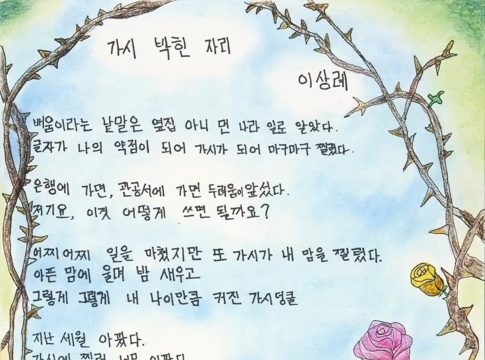 가시 박힌 자리
이상례
배움이라는 낱말은 옆집 아니 먼 나라 일로 알았다.
글자가 나의 약점이 되어 가시가 되어 마구마구 찔렀다.
은행에 가면, 관공서에 가면 두려움이 앞섰다.
저기요, 이것 어떻게 쓰면 될까요?
어찌어찌 일을 마쳤지만 또 가시가 내 맘을 찔렀다.
아픈 맘에 울며 밤 새우고
그렇게 그렇게 내 나이만큼 커진 가시덩쿨
지난 세월 아팠다.
가시에 찔려 너무 아팠다